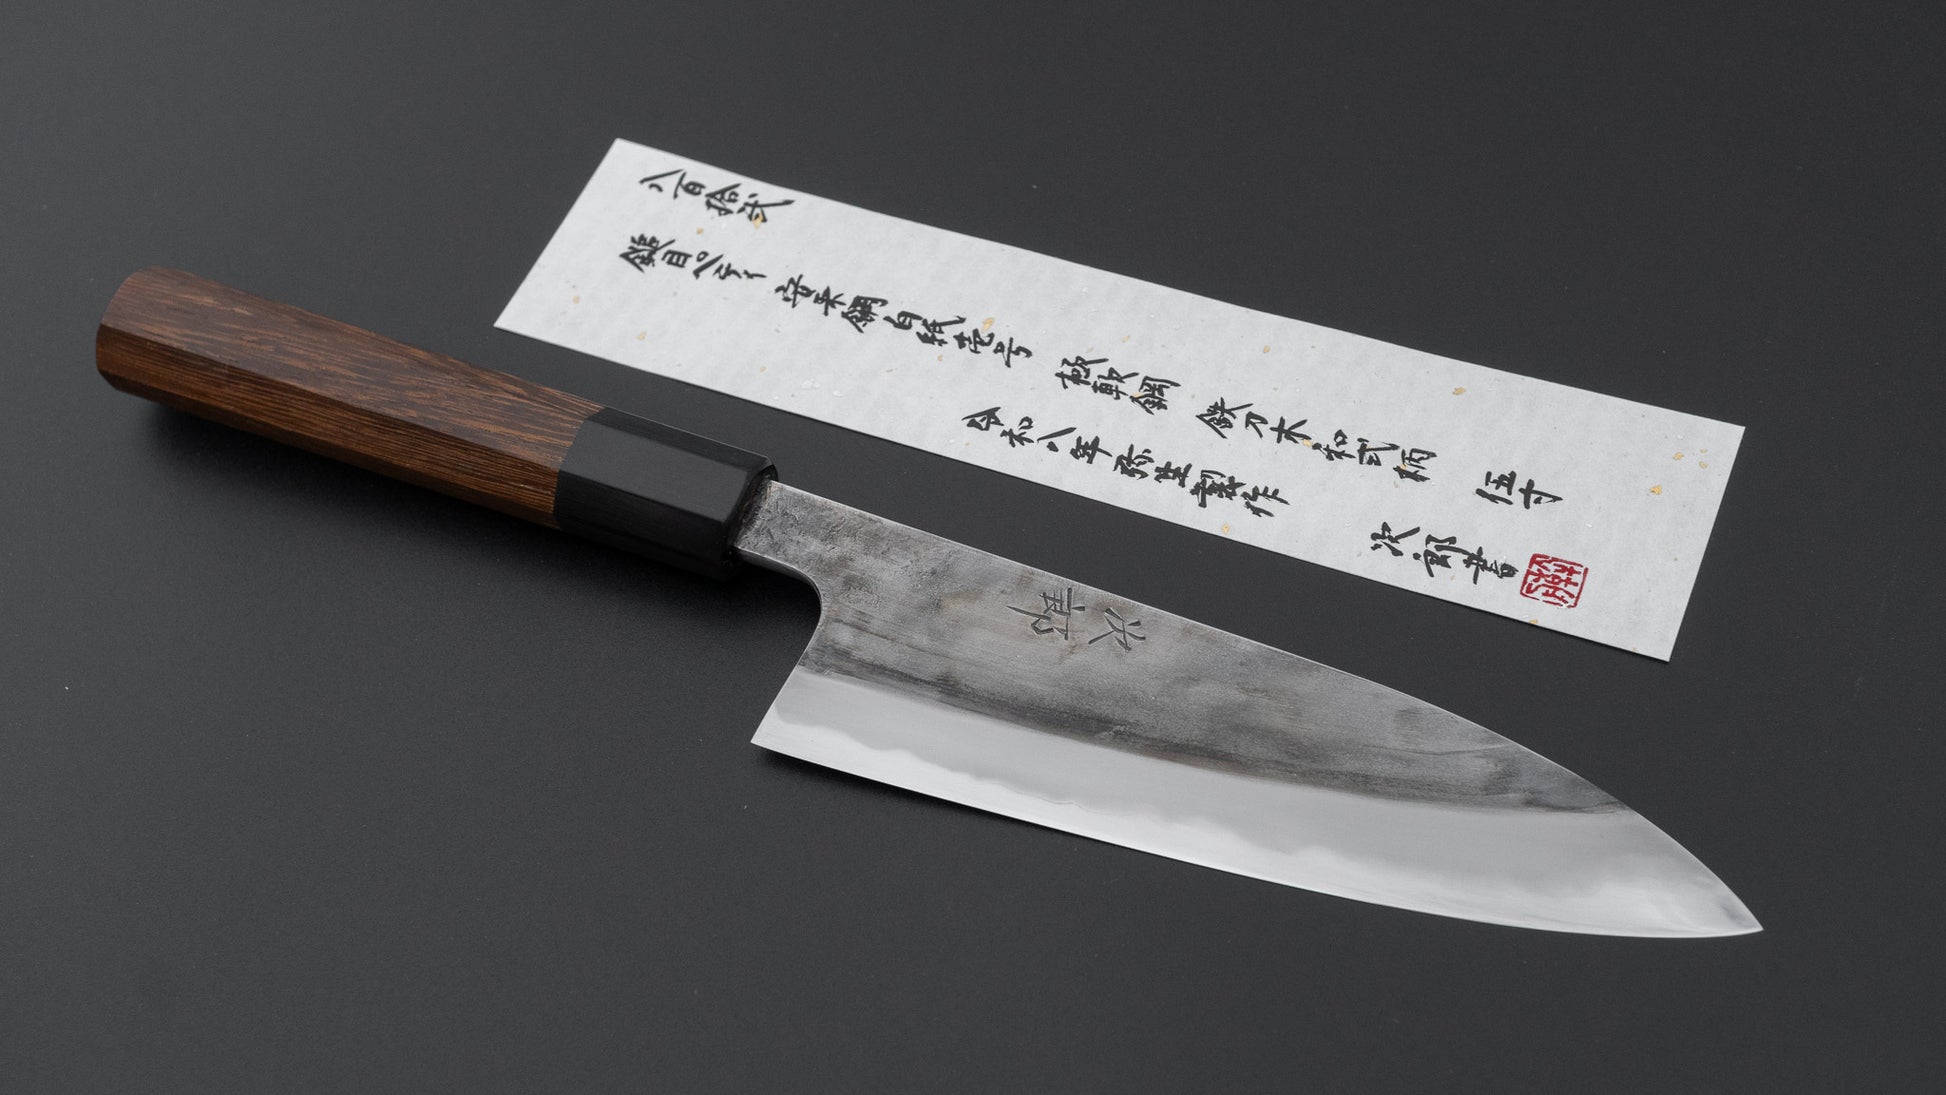 八百拾弐
鎚目ペティ 安来鋼白紙壱号 極軟鋼 鉄刀木和式柄 伍寸
令和八年弥生製作 次郎書
次郎